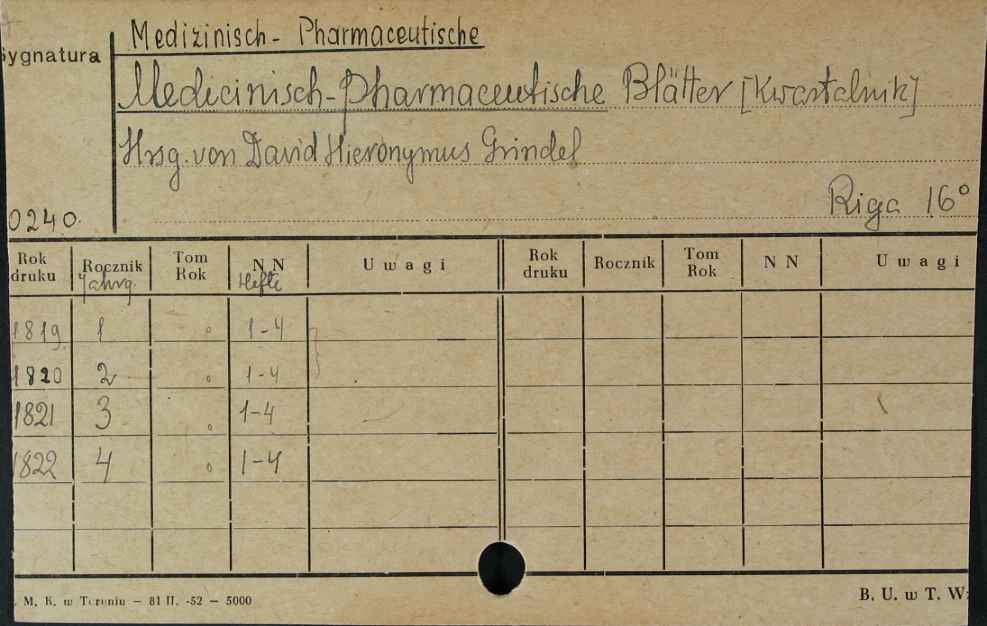 Medizinisch - Pharmaceutische
Sygnatura
Medicinisch-Pharmaceutische Blätter [Kwartalnik]
Hrsg. von David Hieronymus Grindel
Riga 16°
0240.
Rok druku Rocznik Jahrg. Tom Rok NN Hefte Uwagi Rok druku Rocznik Tom Rok NN Uwagi
1819. 1 1-4
1820 2 1-4
1821 3 1-4
1822 4 1-4
M. K. w Toruniu — 81 II. -52 — 5000
B. U. w T. W: